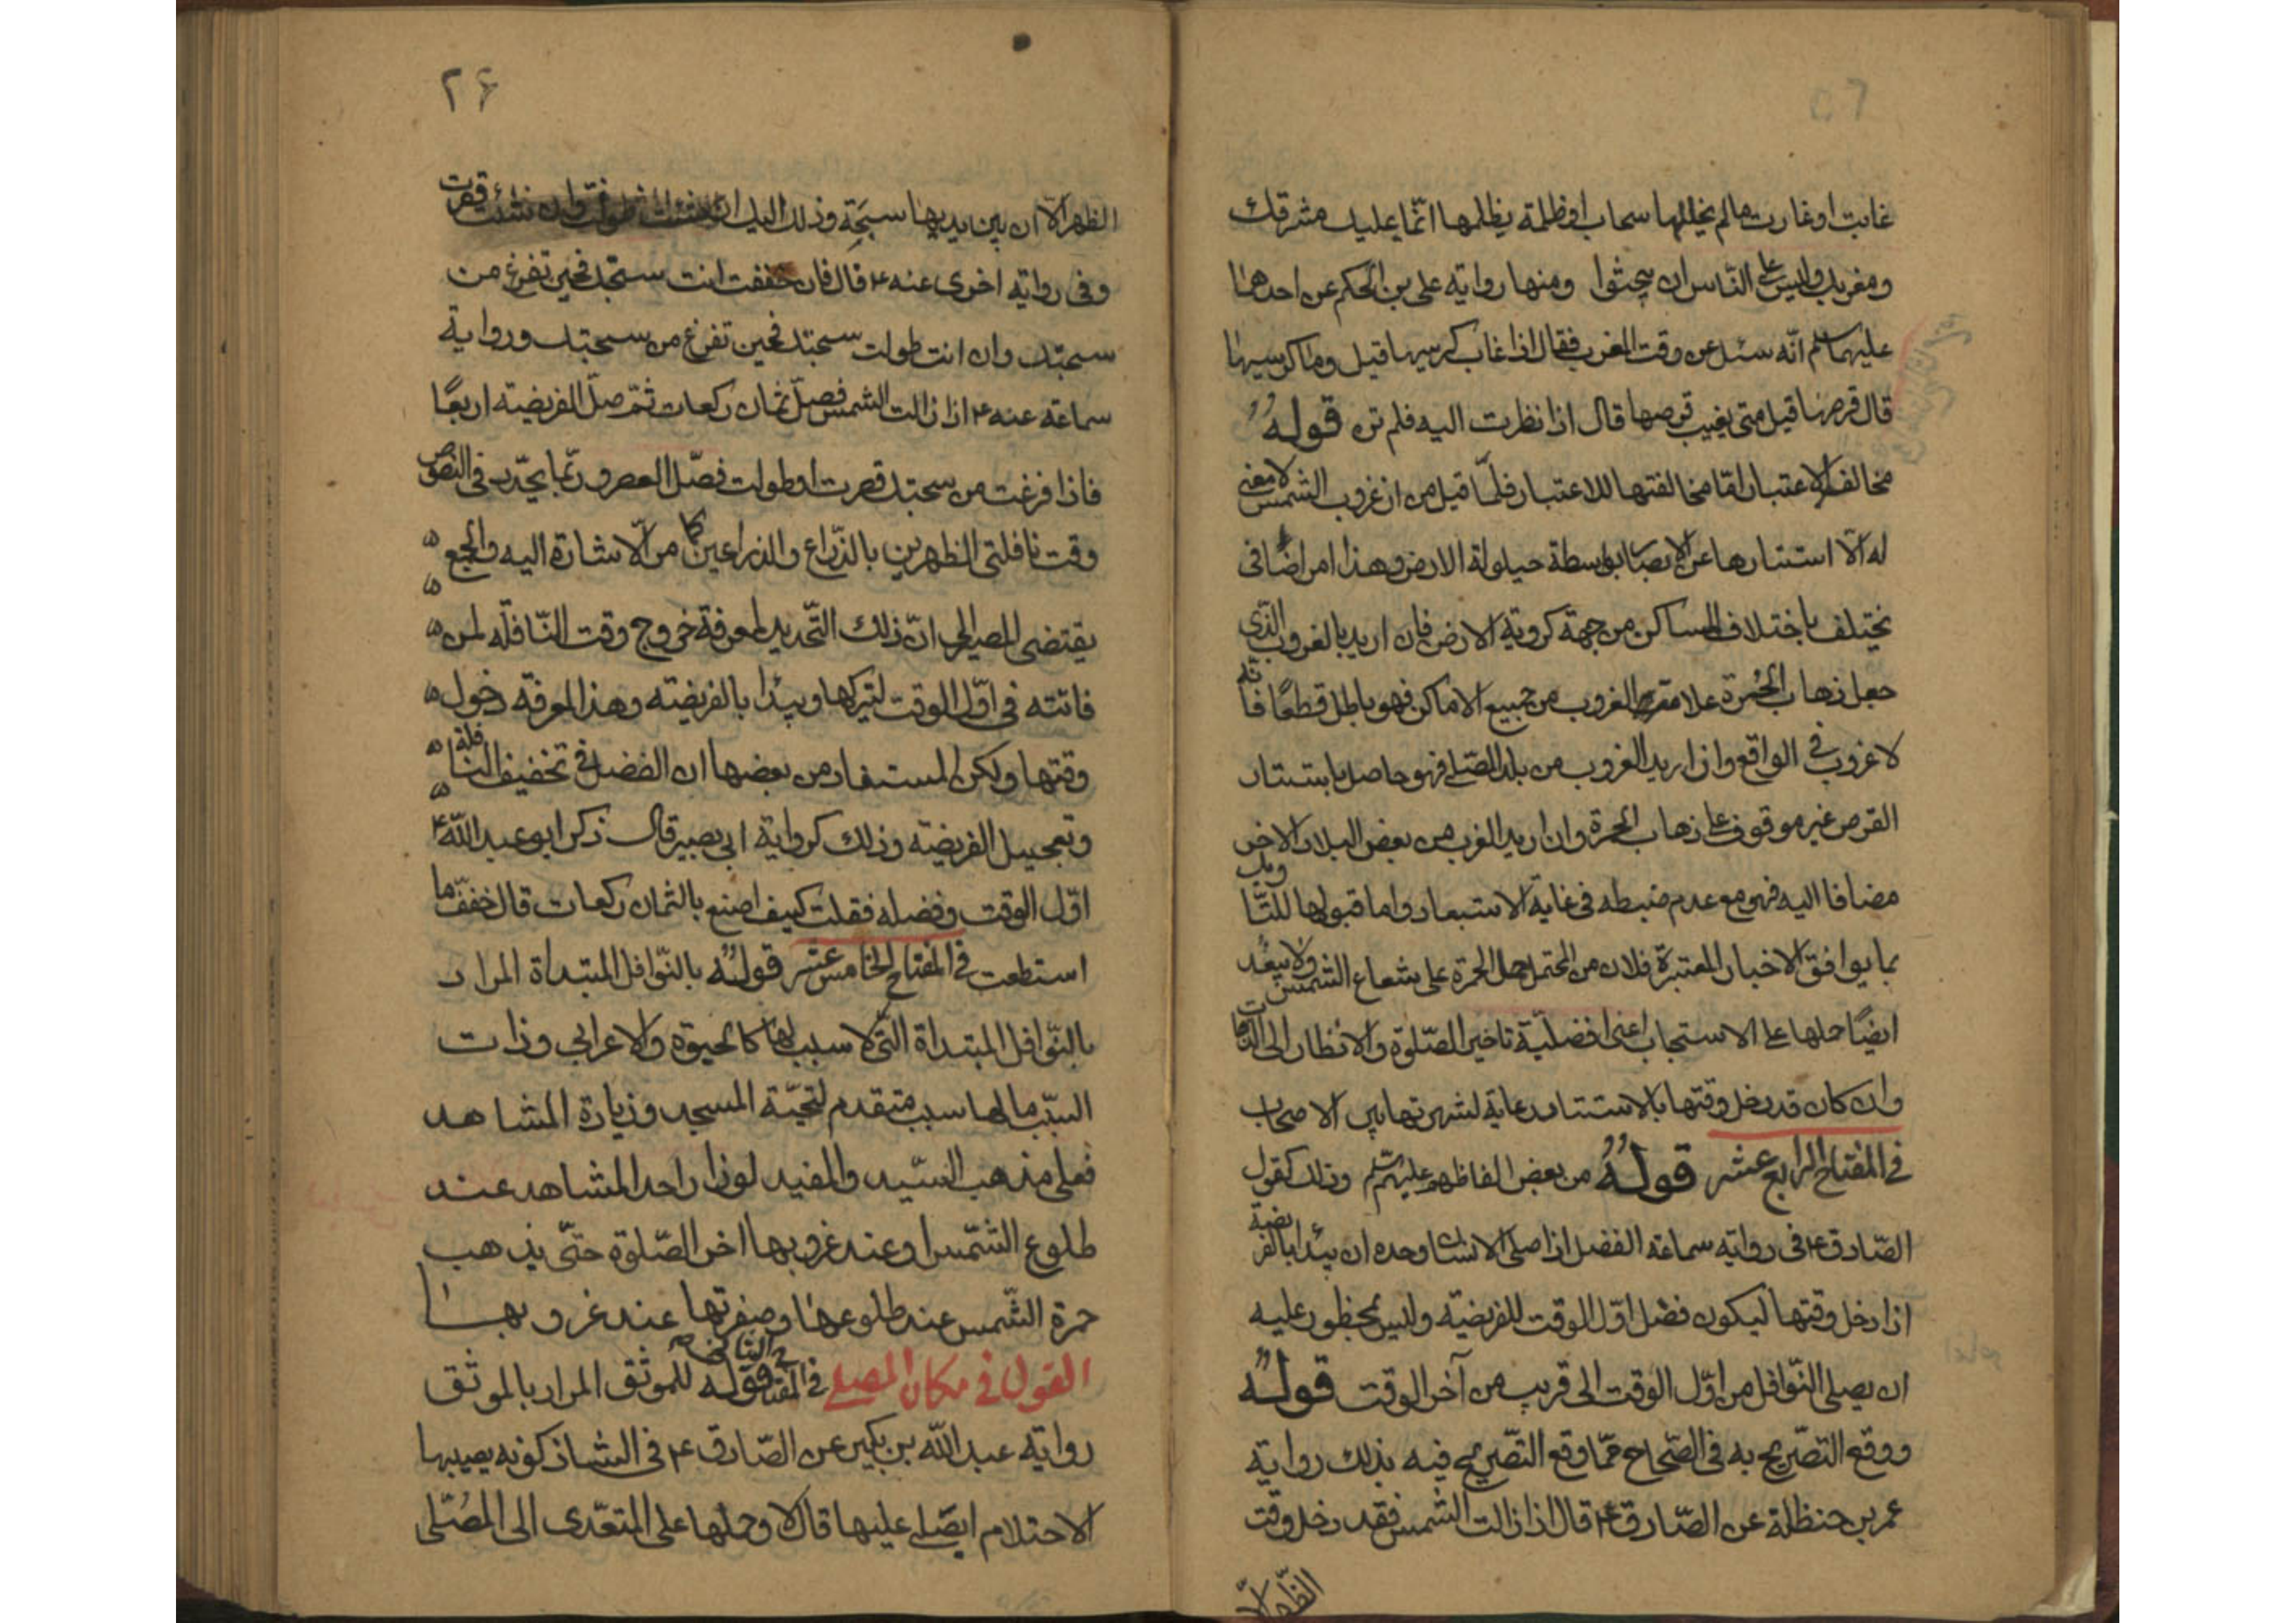 غابت او غارت مالم يجللها سحاب او ظلمة يظلمها انما عليك مشرقك
ومغربك وليس على الناس ان يبحثوا ومنها رواية على بن الحكم عن احدهما
عليهما سلم انه سئل عن وقت المغرب فقال اذا غاب كرسيها قيل وما كرسيها
قال قرصها قيل متى يغيب قرصها قال اذا نظرت اليه فلم تره قوله
مخالف الاعتبار امّا مخالفتها للاعتبار فلمّا قيل من ان غروب الشمس لا معنى
له الّا استتارها عن الابصار بواسطة حيلولة الارض وهذا امر اضافى
يختلف باختلاف المساكن من جهة كروية الارض فان اريد بالغروب الذى
جعل ذهاب الحمرة علامة الغروب من جميع الاماكن فهو باطل قطعًا فانه
لا غروب فى الواقع وان اريد الغروب من بلد المصلى فهو حاصل باستتار
القرص غير موقوف على ذهاب الحمرة وان اريد الغرب من بعض البلاد الاخر
مضافا اليه فهو مع عدم ضبطه فى غاية الاستبعاد واما قبولها للتاويل
بما يوافق الاخبار المعتبرة فلان من المحتمل حمل الحمرة على شعاع الشمس ولا يبعد
ايضًا حملها على الاستحباب اعنى افضليّة تاخير الصّلوة والانظار الى الذهاب
وان كان قد دخل وقتها بالاستتار رعاية لشهرتها بين الاصحاب
فى المفتاح الرابع عشر قوله من بعض الفاظهم عليهم سلم وذلك كقول
الصّادق ع فى رواية سماعة الفضل اذا صلى الانسان وحده ان يبدا بالفريضة
اذا دخل وقتها ليكون فضل اوّل الوقت للفريضة وليس بمحظور عليه
ان يصلى النّوافل من اوّل الوقت الى قريب من آخر الوقت قوله
ووقع التصّريح به فى الصّحاح ممّا وقع التصّريح فيه بذلك رواية
عمر بن حنظلة عن الصّادق ع قال اذا زالت الشمس فقد دخل وقت
الظهر الّا
۲۶
الظهر الّا ان بين يديها سبحة وذلك اليك ان شئت طولت وان شئت قصرت
وفى رواية اخرى عنه ع قال فان خففت انت سبحتك فحين تفرغ من
سبحتك وان انت طولت سبحتك فحين تفرغ من سبحتك ورواية
سماعة عنه ع اذا زالت الشمس فصلّ ثمان ركعات ثمّ صلّ الفريضة اربعًا
فاذا فرغت من سبحتك قصرت او طولت فصّل العصر وربّما يحدّد فى النصوص
وقت نافلتى الظهرين بالذّراع والذراعين كما مر الاشارة اليه والجمع
يقتضى المصير الى انّ ذلك التّحديد لمعرفة خروج وقت النّافلة لمن
فاتته فى اوّل الوقت ليتركها ويبدا بالفريضة وهذا لمعرفة دخول
وقتها ولكن المستفاد من بعضها ان الفضل فى تخفيف النافلة
وتعجيل الفريضة وذلك كرواية ابى بصير قال ذكر ابو عبد اللّه ع
اوّل الوقت وفضله فقلت كيف اصنع بالثمان ركعات قال خفف ما
استطعت فى المفتاح الخامس عشر قوله بالنّوافل المبتداة المراد
بالنّوافل المبتداة التى لا سبب لها كالحبوة والاعرابى وذات
السبّب ما لها سبب متقدم لتحيّة المسجد وزيارة المشاهد
فعلى مذهب السّيد والمفيد لو زار احد المشاهد عند
طلوع الشّمس او عند غروبها اخر الصّلوة حتّى يذهب
حمرة الشّمس عند طلوعها وصفرتها عند غروبها
القول فى مكان المصلى فى المفتاح قوله للموثق المراد بالموثق
رواية عبد اللّه بن بكير عن الصّادق ع فى الشاذكونه يصيبها
الاحتلام ايصّلى عليها قال لا وحملها على المتعّدى الى المصّلى